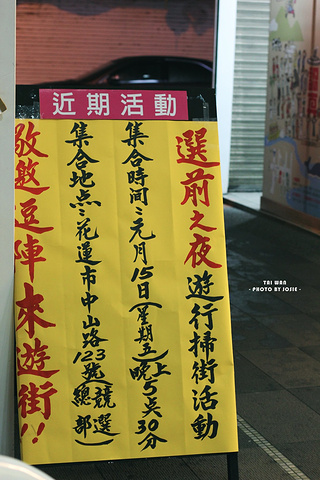 近期活動
選前之夜遊行掃街活動
集合時間：元月15日(星期五)晚上5点30分
集合地点：花蓮市中山路123號(競選總部)
敬邀逗陣來遊街!!
TAI WAN
- PHOTO BY JOSIE -